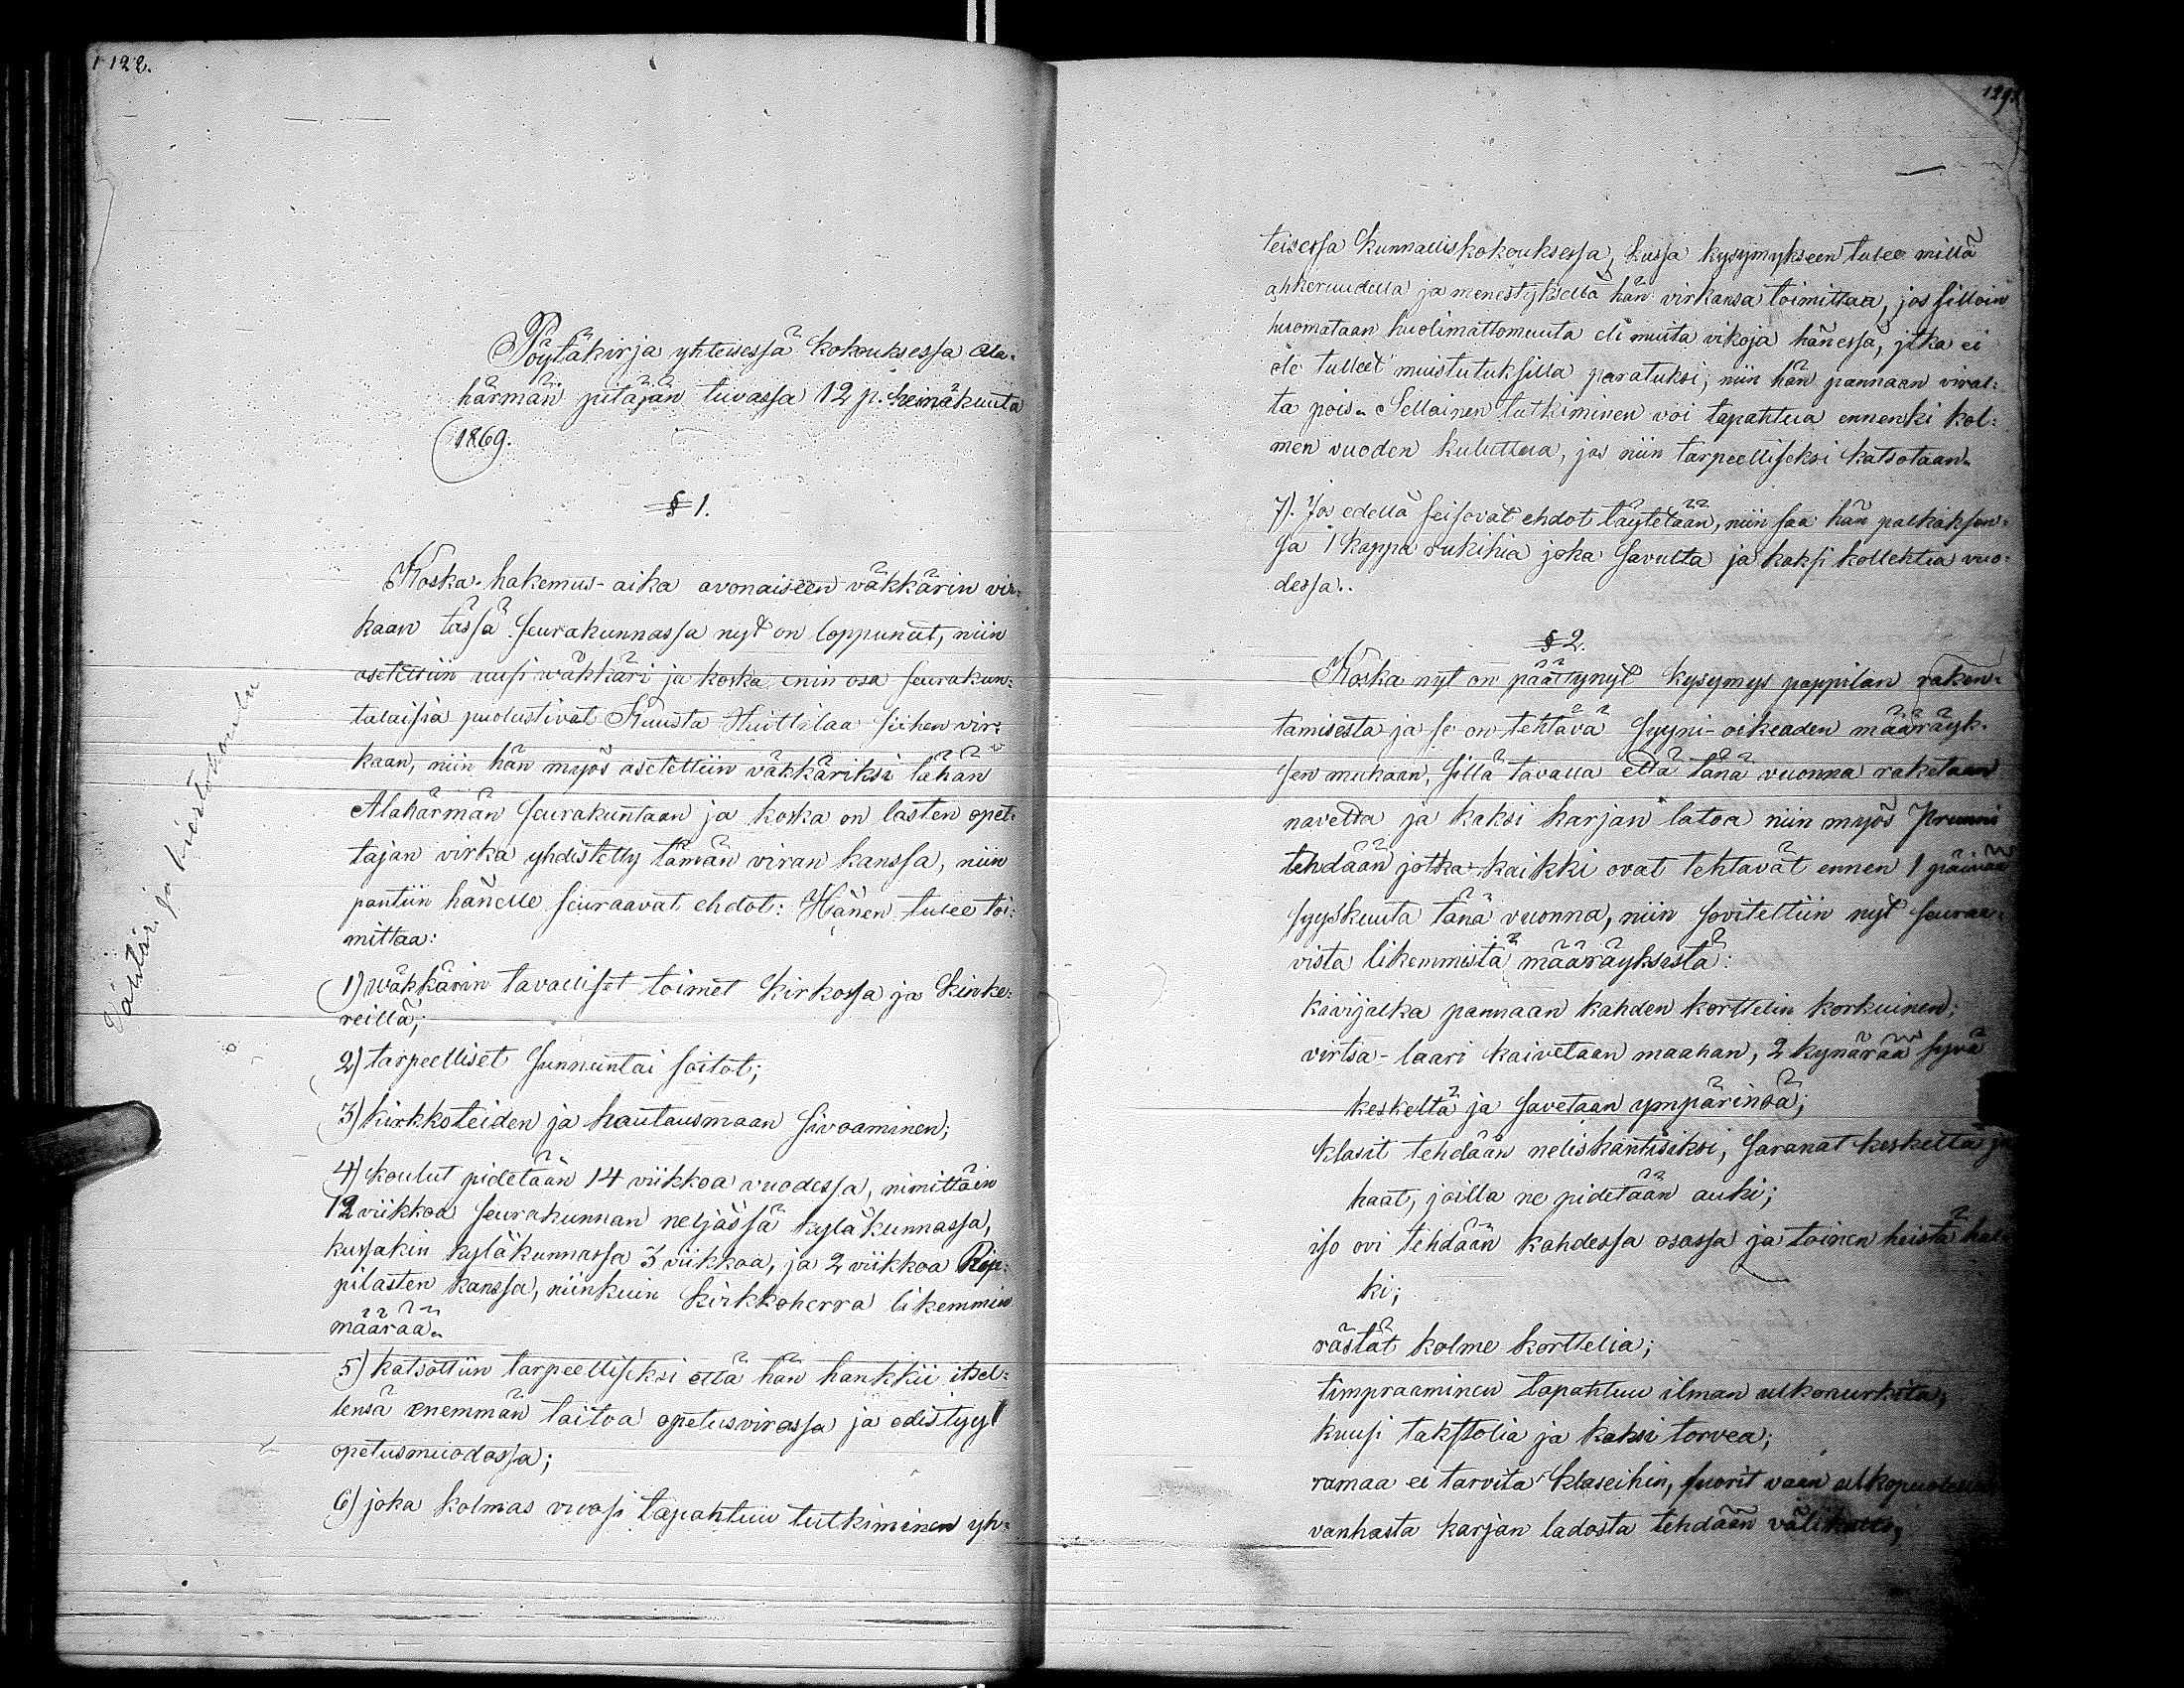 122.
Pöytäkirja yhteisessä kokouksessa Ala-
härmän pitäjän tuvassa 12 p. heinäkuuta
1869.
§ 1.
Koska hakemus-aika avonaiseen väkkärin vir-
kaan tässä seurakunnassa nyt on loppunut, niin
asetettiin uusi wäkkäri ja koska enin osa seurakun:
talaisia puolustivat Kuusta Huittilaa siihen vir:
kaan, niin hän myös asetettiin väkkäriksi tähän
Alahärmän seurakuntaan ja koska on lasten opet:
tajan virka yhdistetty tämän viran kanssa, niin
pantiin hänelle seuraavat ehdot: Hänen tulee toi:
mittaa:
1) wäkkärin tavalliset toimet kirkossa ja kinke:
reillä;
2) tarpeelliset sunnuntai soitot;
3) kirkkoteiden ja hautausmaan sivoaminen;
4) koulut pidetään 14 viikkoa vuodessa, nimittäin
12 viikkoa seurakunnan neljässä kyläkunnassa,
kussakin kyläkunnassa 3 viikkoa, ja 2 viikkoa Rip:
pilasten kanssa, niinkuin kirkkoherra likemmin
määrää.
5) katsottiin tarpeelliseksi että hän hankkii itsel:
lensä enemmän taitoa opetusvirassa ja edistyyt
opetusmuodossa;
6) joka kolmas vuosi tapahtuu tutkiminen yh:
Väkkäri ja
teisessä kunnalliskokouksessa, kussa kysymykseen tulee millä
ahkeruudella ja menestyksellä hän virkansa toimittaa, jos silloin
huomataan huolimattomuuta eli muita vikoja hänessä, jtka ei
ole tulleet muistutuksilla paratuksi, niin hän pannaan viral:
ta pois. Sellainen tutkiminen voi tapahtua ennenki kol:
men vuoden kuluttua, jos niin tarpeelliseksi katsotaan.
7). Jos edellä seisovat ehdot täytetään, niin saa hän palkaksen:
sa 1 kappa rukihia joka savulta ja kaksi kollehtia vuo:
dessa..
§ 2.
Koska nyt on päättynyt kysymys pappilan raken-
tamisesta ja se on tehtävä syyni-oikeaden määräyk-
sen mukaan, sillä tavalla että tänä vuonna raketaan
navetta ja kaksi karjan latoa niin myös prunni
tehdään jotka kaikki ovat tehtavät ennen 1 päivää
syyskuuta tänä vuonna, niin sovitettiin nyt seuraa-
vista likemmistä määräyksistä:
kivijalka pannaan kahden korttelin korkuinen;
virtsa-laari kaivetaan maahan, 2 kynärää syvä
keskeltä ja savetaan ympärinsä;
klasit tehdään neliskantisiksi, saranat keskeltä ja
haat, joilla ne pidetään auki;
iso ovi tehdään kahdessa osassa ja toinen heistä hal-
ki;
rästät kolme korttelia;
timpraaminen tapahtuu ilman ulkonurkita;
kuusi takstolia ja kaksi torvea;
ramaa ei tarvita klaseihin, fuorit vaan ulkopuolella
vanhasta karjan ladosta tehdään